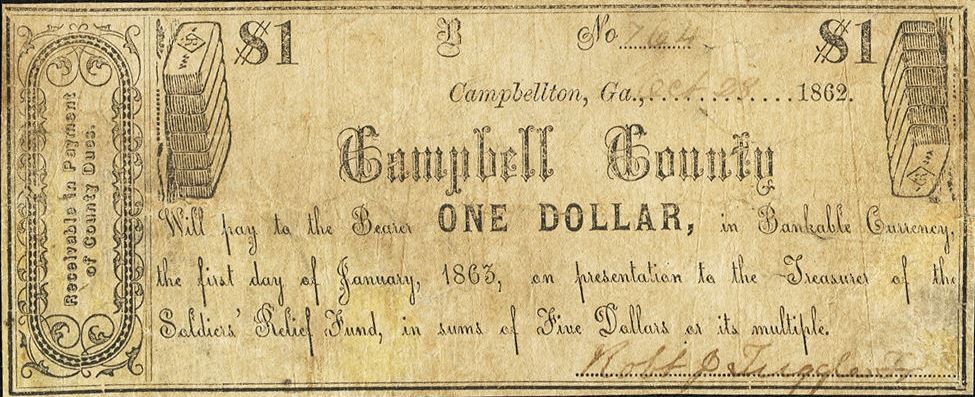 $1 B No 764 $1
Campbellton, Ga., Oct 28 1862.
Campbell County
Will pay to the Bearer ONE DOLLAR, in Bankable Currency,
the first day of January, 1863, on presentation to the Treasurer of the
Soldiers' Relief Fund, in sums of Five Dollars or its multiple.
Robt J Tuggle
Receivable in Payment
of County Dues.